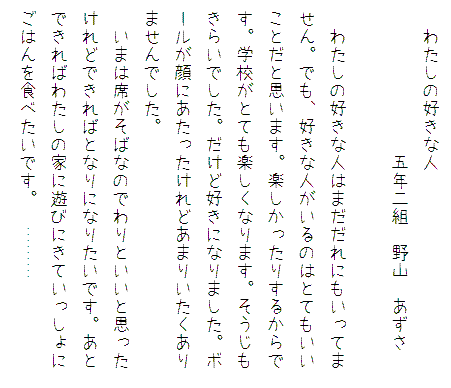 わたしの好きな人
五年二組　野山　あずさ
　わたしの好きな人はまだだれにもいってま
せん。でも、好きな人がいるのはとてもいい
ことだと思います。楽しかったりするからで
す。学校がとても楽しくなります。そうじも
きらいでした。だけど好きになりました。ボ
ールが顔にあたったけれどあまりいたくあり
ませんでした。
　いまは席がそばなのでわりといいと思った
けれどできればとなりになりたいです。あと
できればわたしの家に遊びにきていっしょに
ごはんを食べたいです。　………